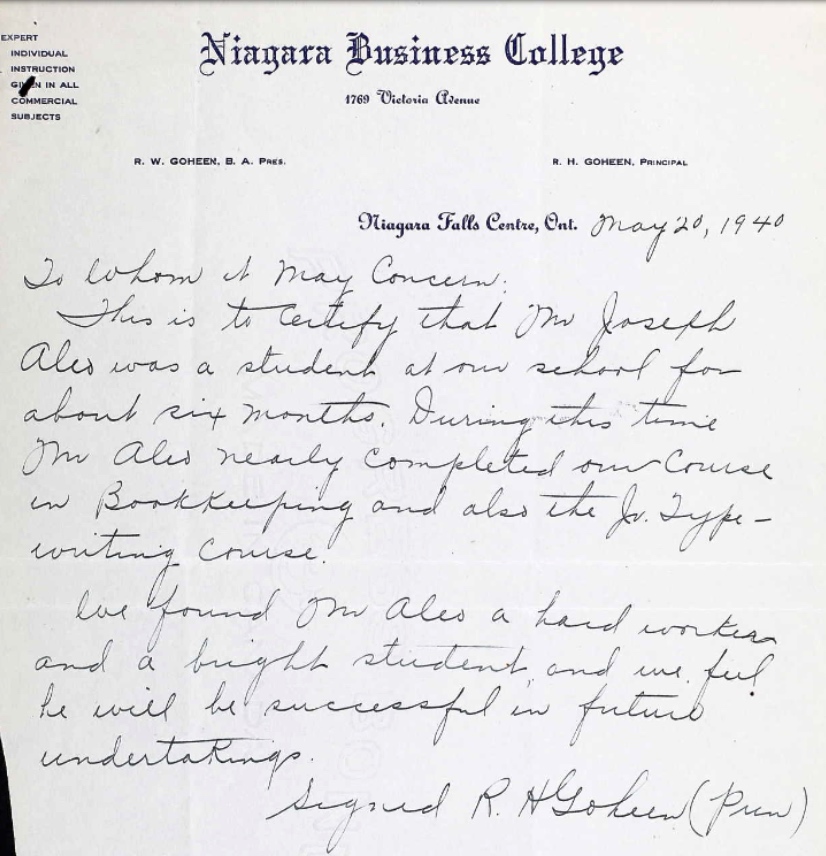 EXPERT
INDIVIDUAL
INSTRUCTION
GIVEN IN ALL
COMMERCIAL
SUBJECTS
Niagara Business College
1769 Victoria Avenue
R. W. GOHEEN, B. A. PRES.
R. H. GOHEEN, PRINCIPAL
Niagara Falls Centre, Ont. May 20, 1940
To Whom it May Concern:
This is to certify that Mr Joseph
Aleo was a student at our school for
about six months. During this time
Mr Aleo nearly completed our Course
in Bookkeeping and also the Jr. Type-
writing Course.
We found Mr Aleo a hard worker
and a bright student, and we feel
he will be successful in future
undertakings.
Signed R. H Goheen (Prin)